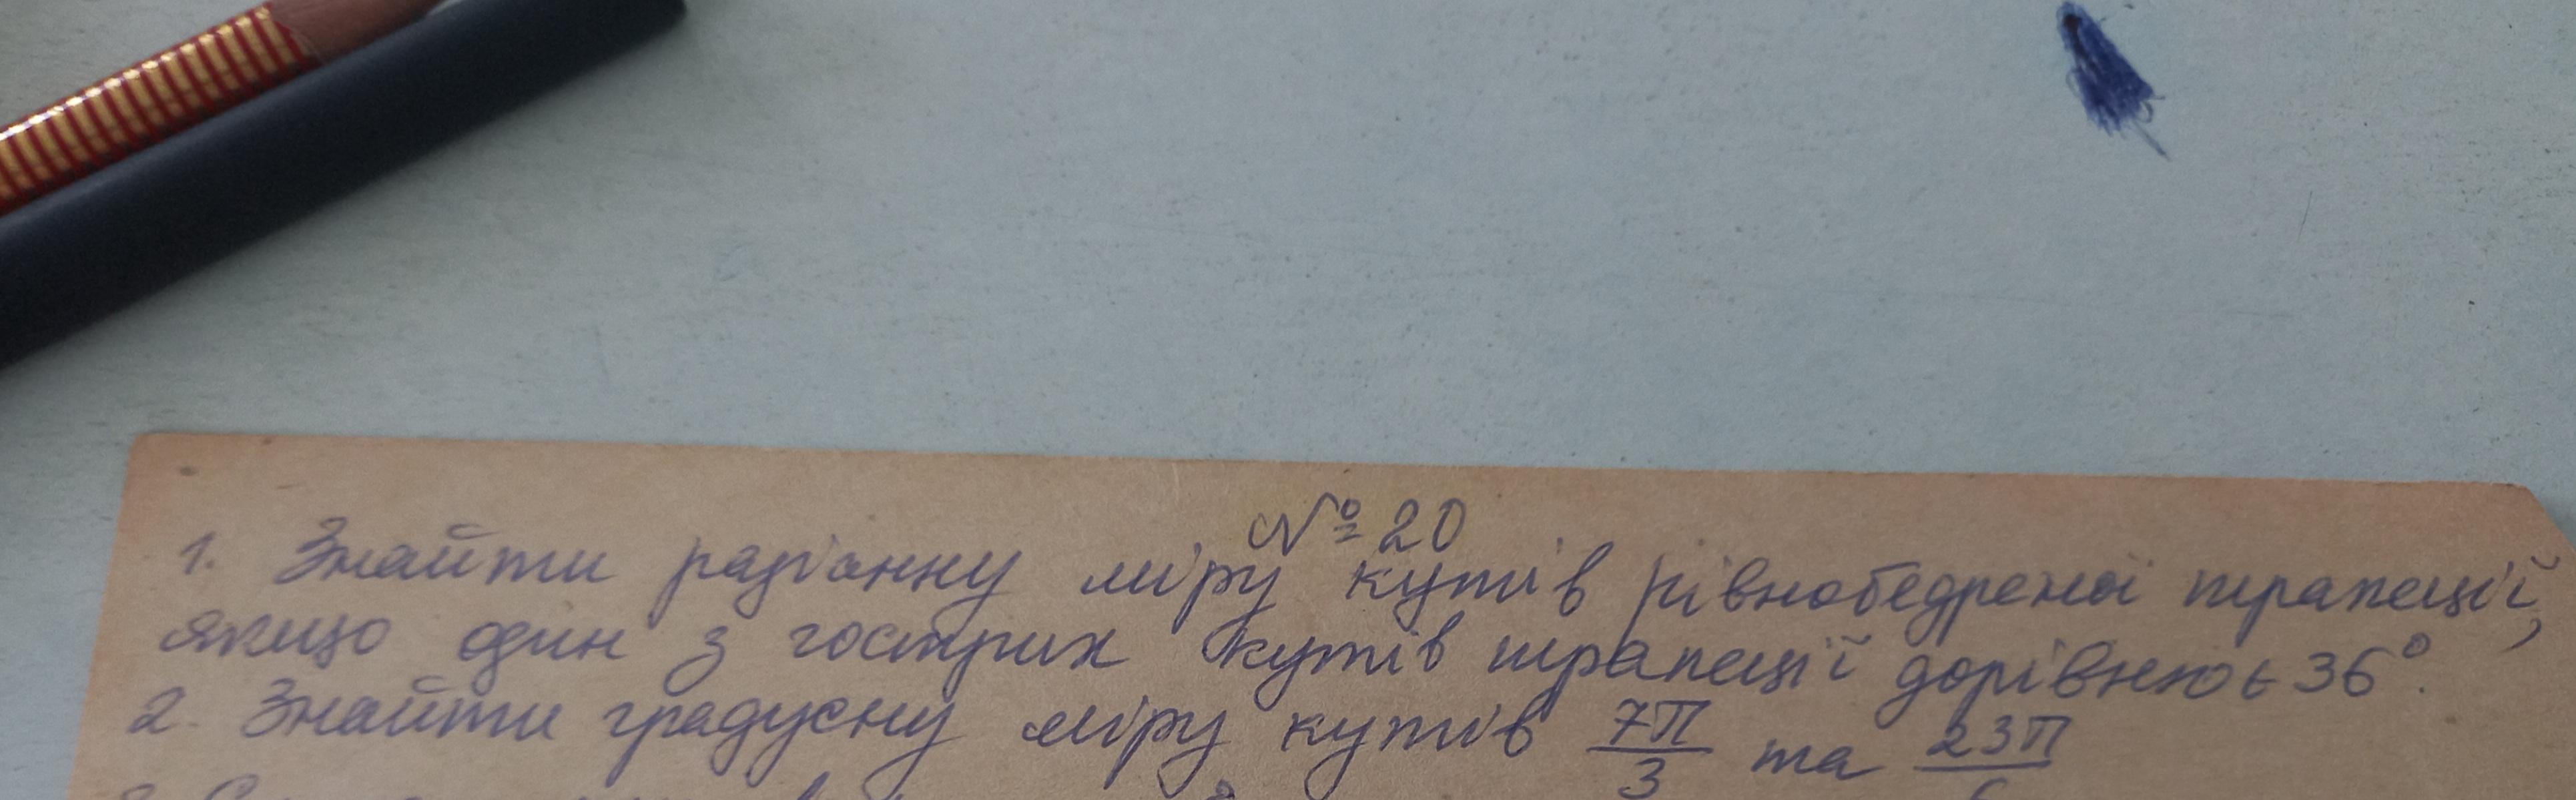 № 20
1. Знайти радіанну міру кутів рівнобедреної трапеції,
якщо один з гострих кутів трапеції дорівнює 36°.
2. Знайти градусну міру кутів 7П/3 та 23П